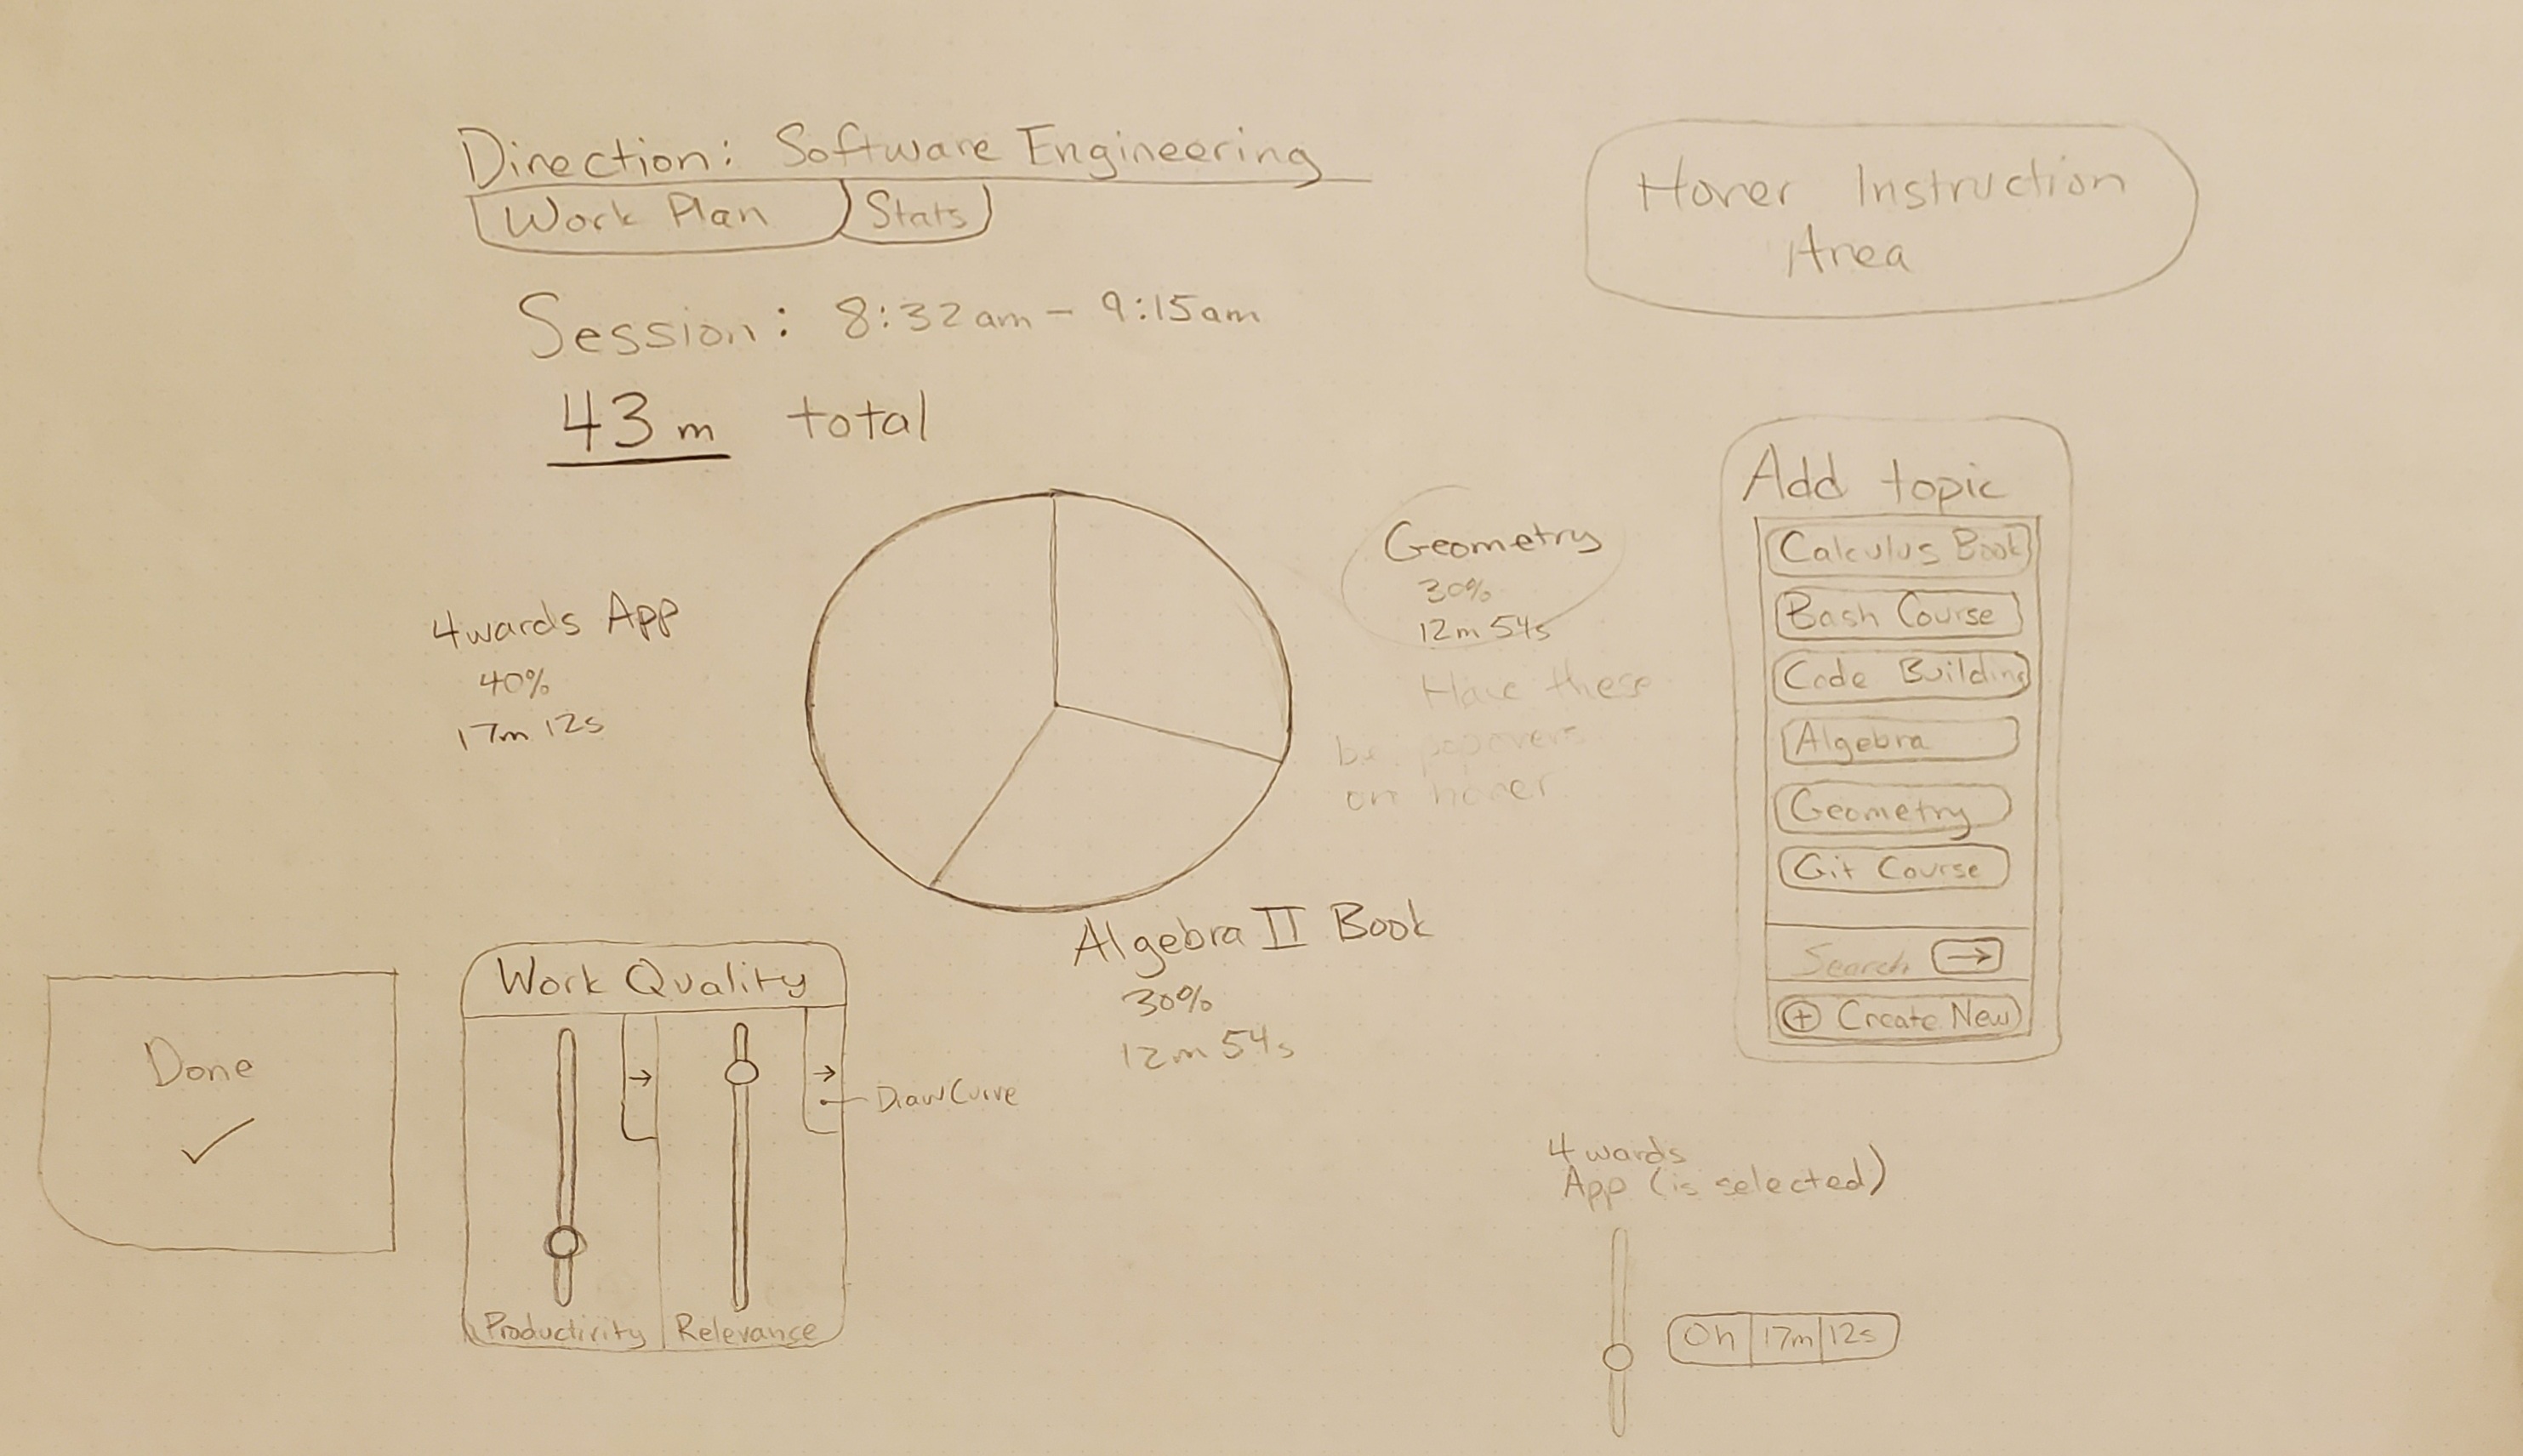 Direction: Software Engineering
Work Plan
Stats
Hover Instruction
Area
Session: 8:32am - 9:15am
43m total
Geometry
30%
12m 54s
Have these
be popovers
on hover
4wards App
40%
17m 12s
Algebra II Book
30%
12m 54s
Add topic
Calculus Book
Bash Course
Code Building
Algebra
Geometry
Git Course
Search →
+ Create New
Done
✓
Work Quality
→
→
Draw Curve
Productivity
Relevance
4wards
App (is selected)
0h 17m 12s